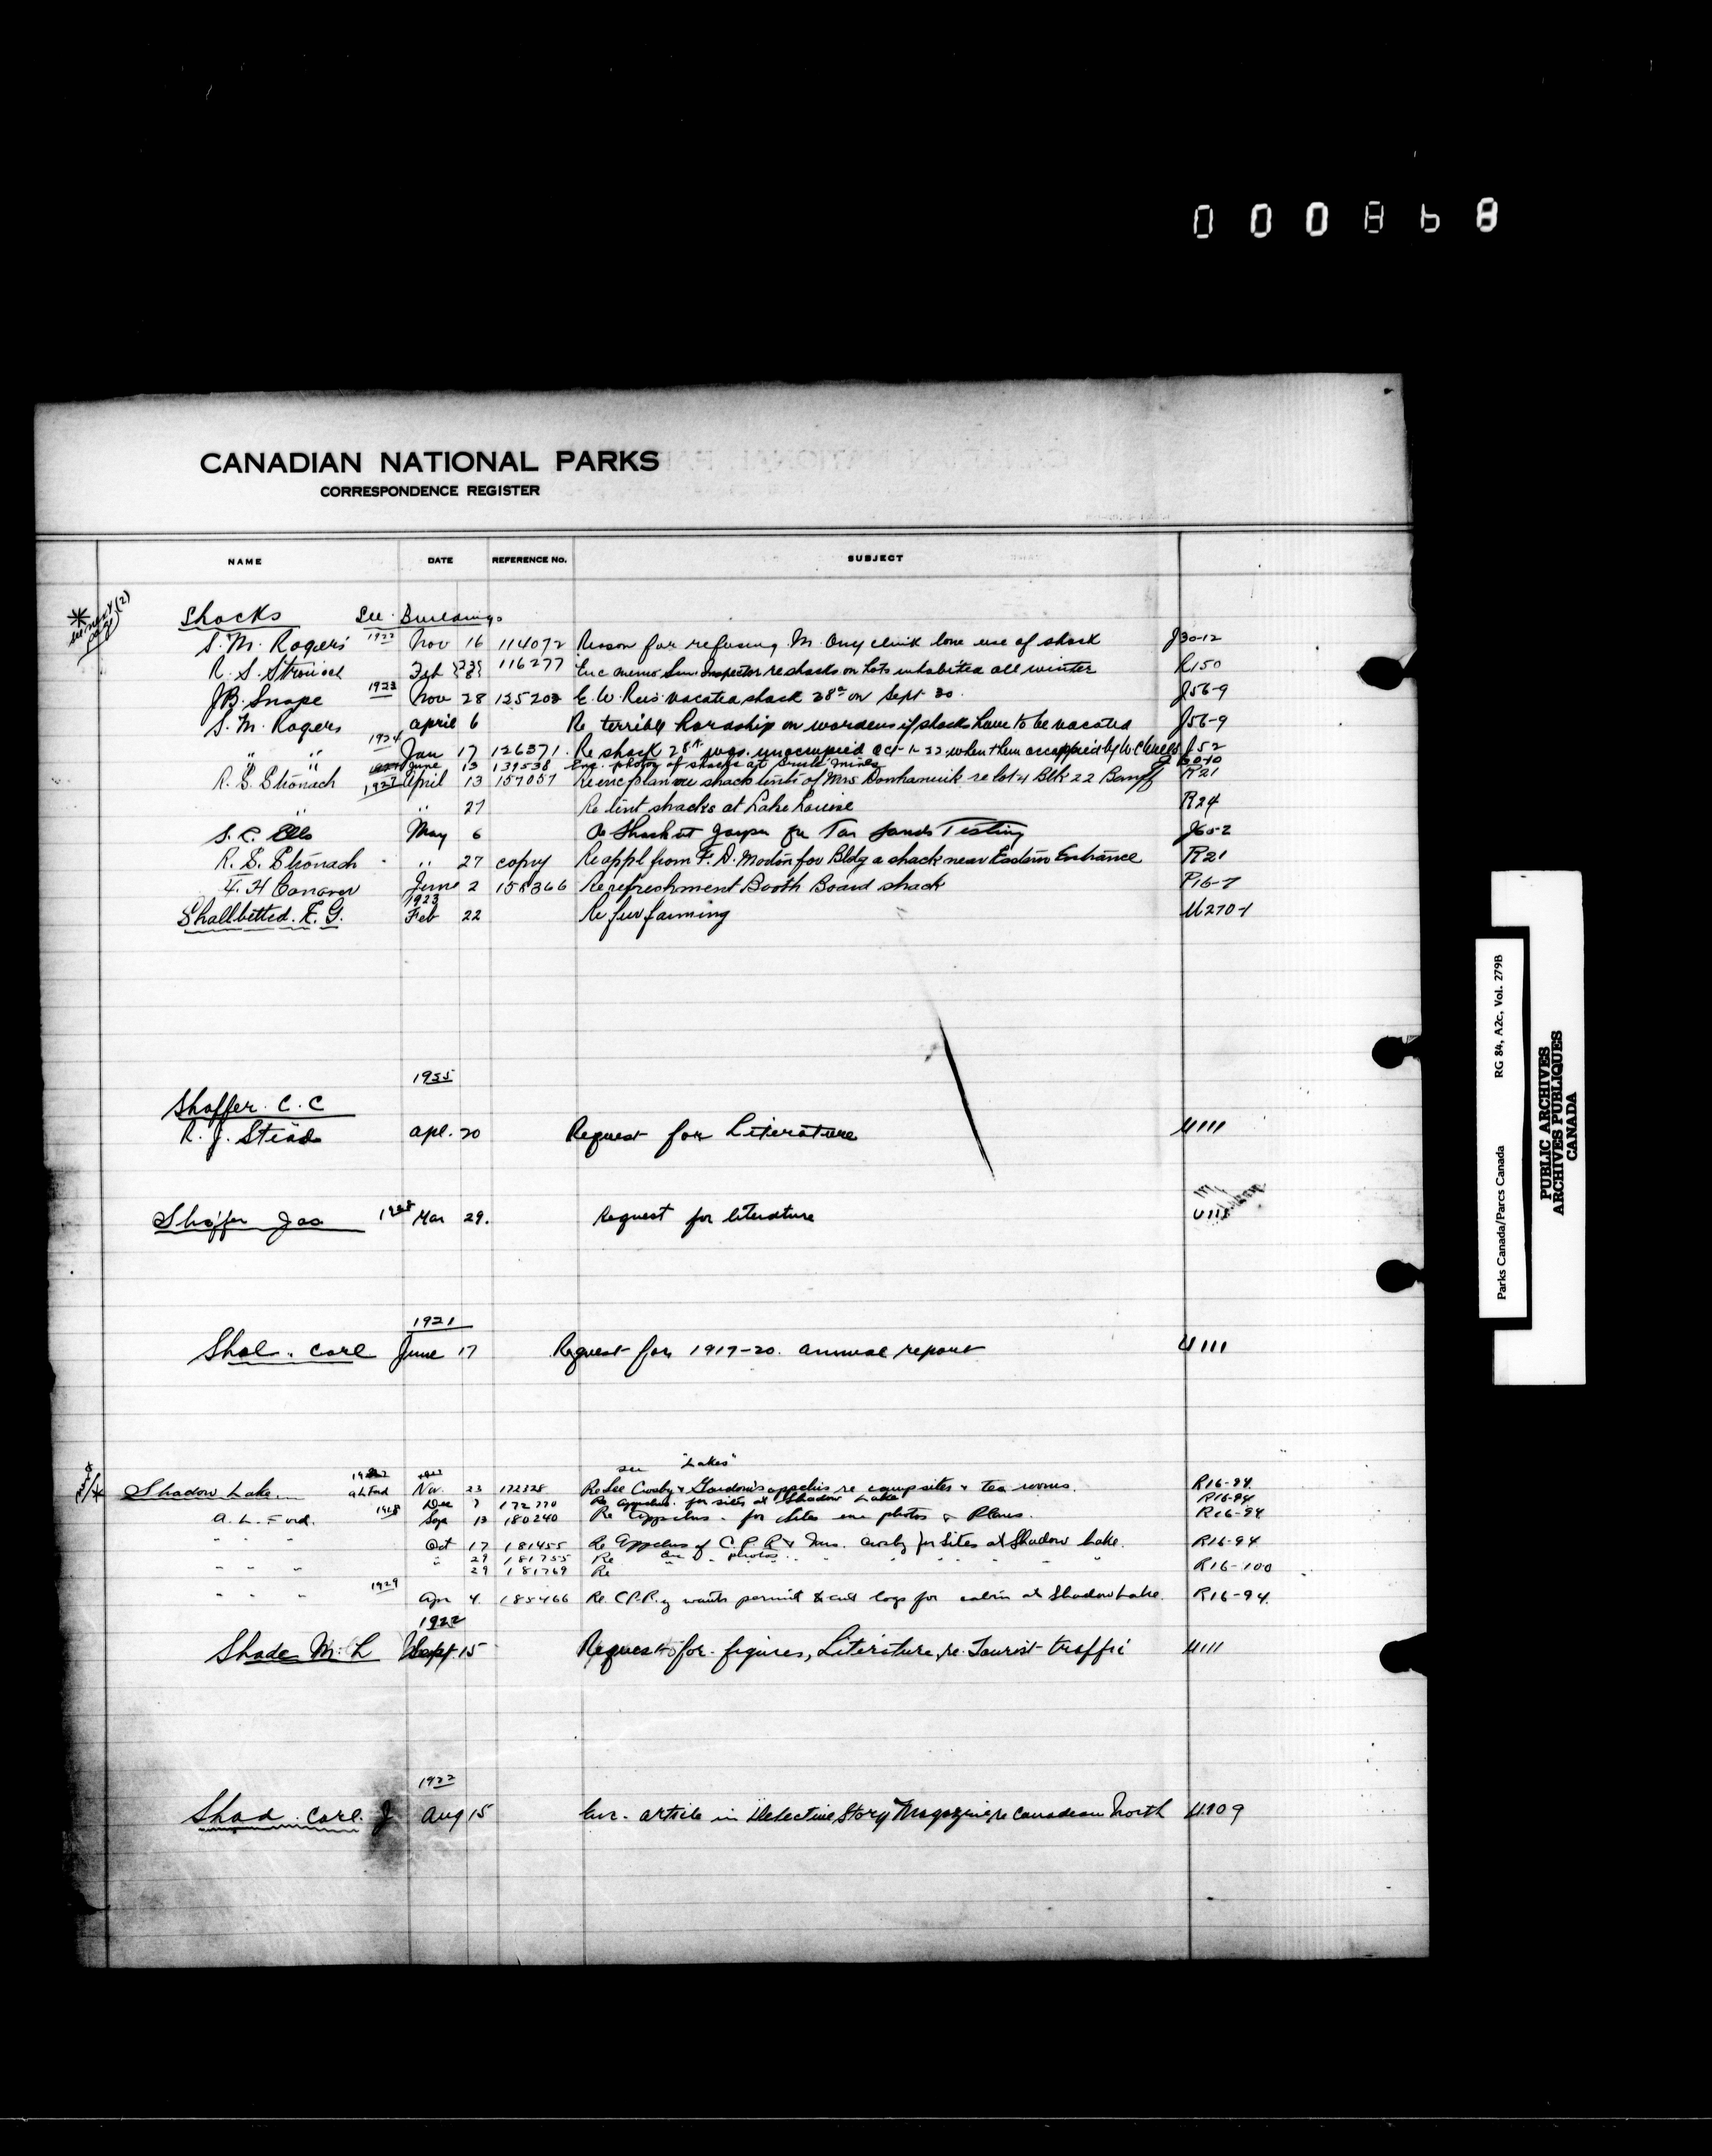 000868
CANADIAN NATIONAL PARKS
CORRESPONDENCE REGISTER
NAME DATE REFERENCE No. SUBJECT
Shacks See Buildings
S. M. Rogers 1922 Nov 16 114072 Reason for refusing M. use of shack J30-12
R. S. Stronach Feb 116277 Enc memo re shacks on Lots inhabited all winter R150
J.B. Snape 1923 Nov 28 125203 E. W. vacated shack on Sept 30. J56-9
S. M. Rogers April 6 Re terrible hardship on wardens if shacks have to be vacated J56-9
" " 1924 Jan 17 126371 Re shack unoccupied when then occupied by J52
" " June 13 139538 Enc. photos of shacks at mines
R. S. Stronach 1927 April 13 157057 Re enc plan shack of Mrs re lot 4 Blk 22 Banff R21
" 27 Re tent shacks at Lake Louise R24
S. C. Ells May 6 Re Shack at Jasper for Tar Sands Testing J60-2
R. S. Stronach " 27 copy Re appl from F. D. for Bldg a shack near Eastern Entrance R21
June 2 158366 Re refreshment Booth Board shack P16-7
Shallbetted. F. G. 1923 Feb 22 Re fur farming U270-1
1935
Shaffer. C. C
R. J. Stead Apl. 20 Request for Literature U111
Shaffer Jas 1928 Mar 29. Request for literature U111
1921
Shal. Carl June 17 Request for 1919-20. annual report U111
see "Lakes"
Shadow Lake A L Ford Nov. 23 172328 Re Crosby & Gordon's appctns re campsites & tea rooms. R16-94.
Dec 7 172770 Re appctns. for sites at Shadow Lake R16-94
A. L. Ford. 1928 Sep 13 180240 Re Appctns. for Sites enc photos & Plans. R16-94
" " " Oct 17 181455 Re Appctns of C.P.R & Mrs. Crosby for Sites at Shadow Lake. R16-94
" 29 181755 Re enc photos
" " " 29 181769 Re " " " " R16-100
" " " 1929 Apr 4. 185466 Re C.P.Ry wants permit to cut logs for cabin at Shadow Lake. R16-94.
1922
Shade M. L Sept 15 Request for figures, Literature, re. Tourist traffic U111
1922
Shad. Carl. J Aug 15 Enc. article in Detective Story Magazine re Canadian North U109
Parks Canada/Parcs Canada RG 84, A2c, Vol. 279B
PUBLIC ARCHIVES
ARCHIVES PUBLIQUES
CANADA